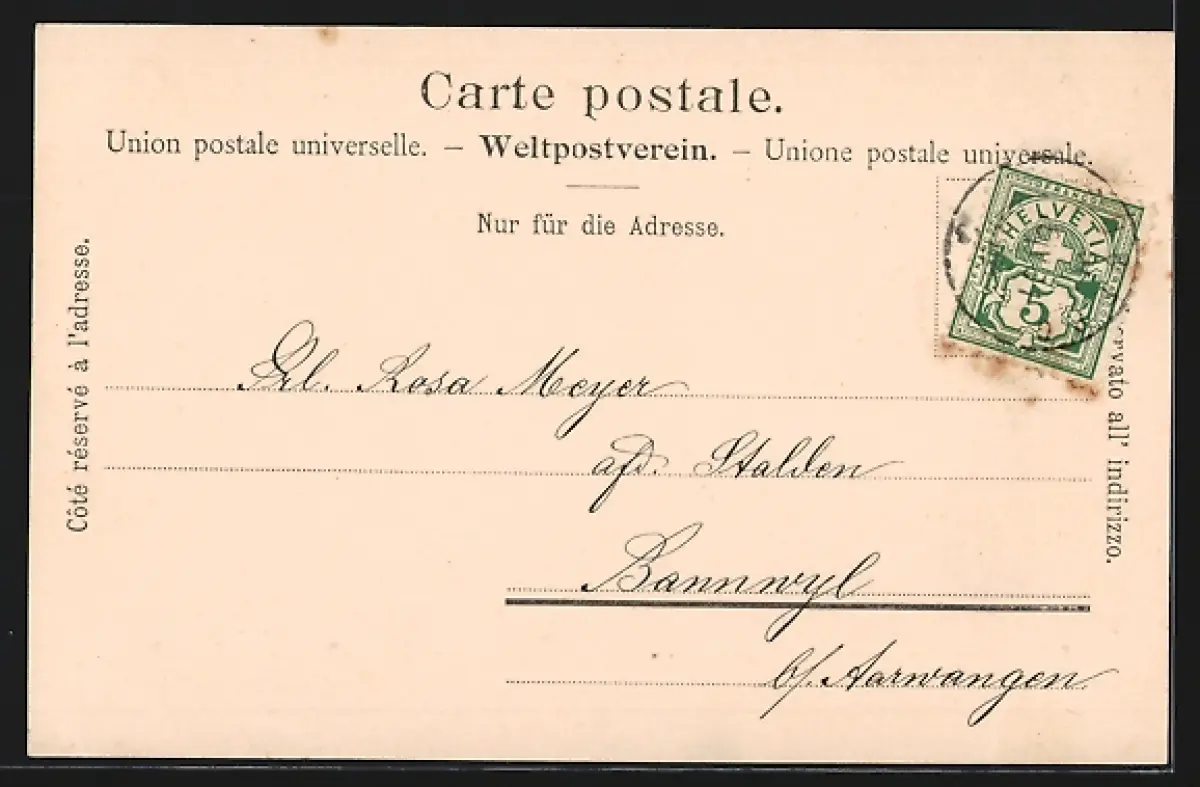 Carte postale.
Union postale universelle. — Weltpostverein. — Unione postale universale.
Nur für die Adresse.
Côté réservé à l'adresse.
HELVETIA
5
all' indirizzo.
Frl. Rosa Meyer
Stalden
Bannwyl
b/. Aarwangen